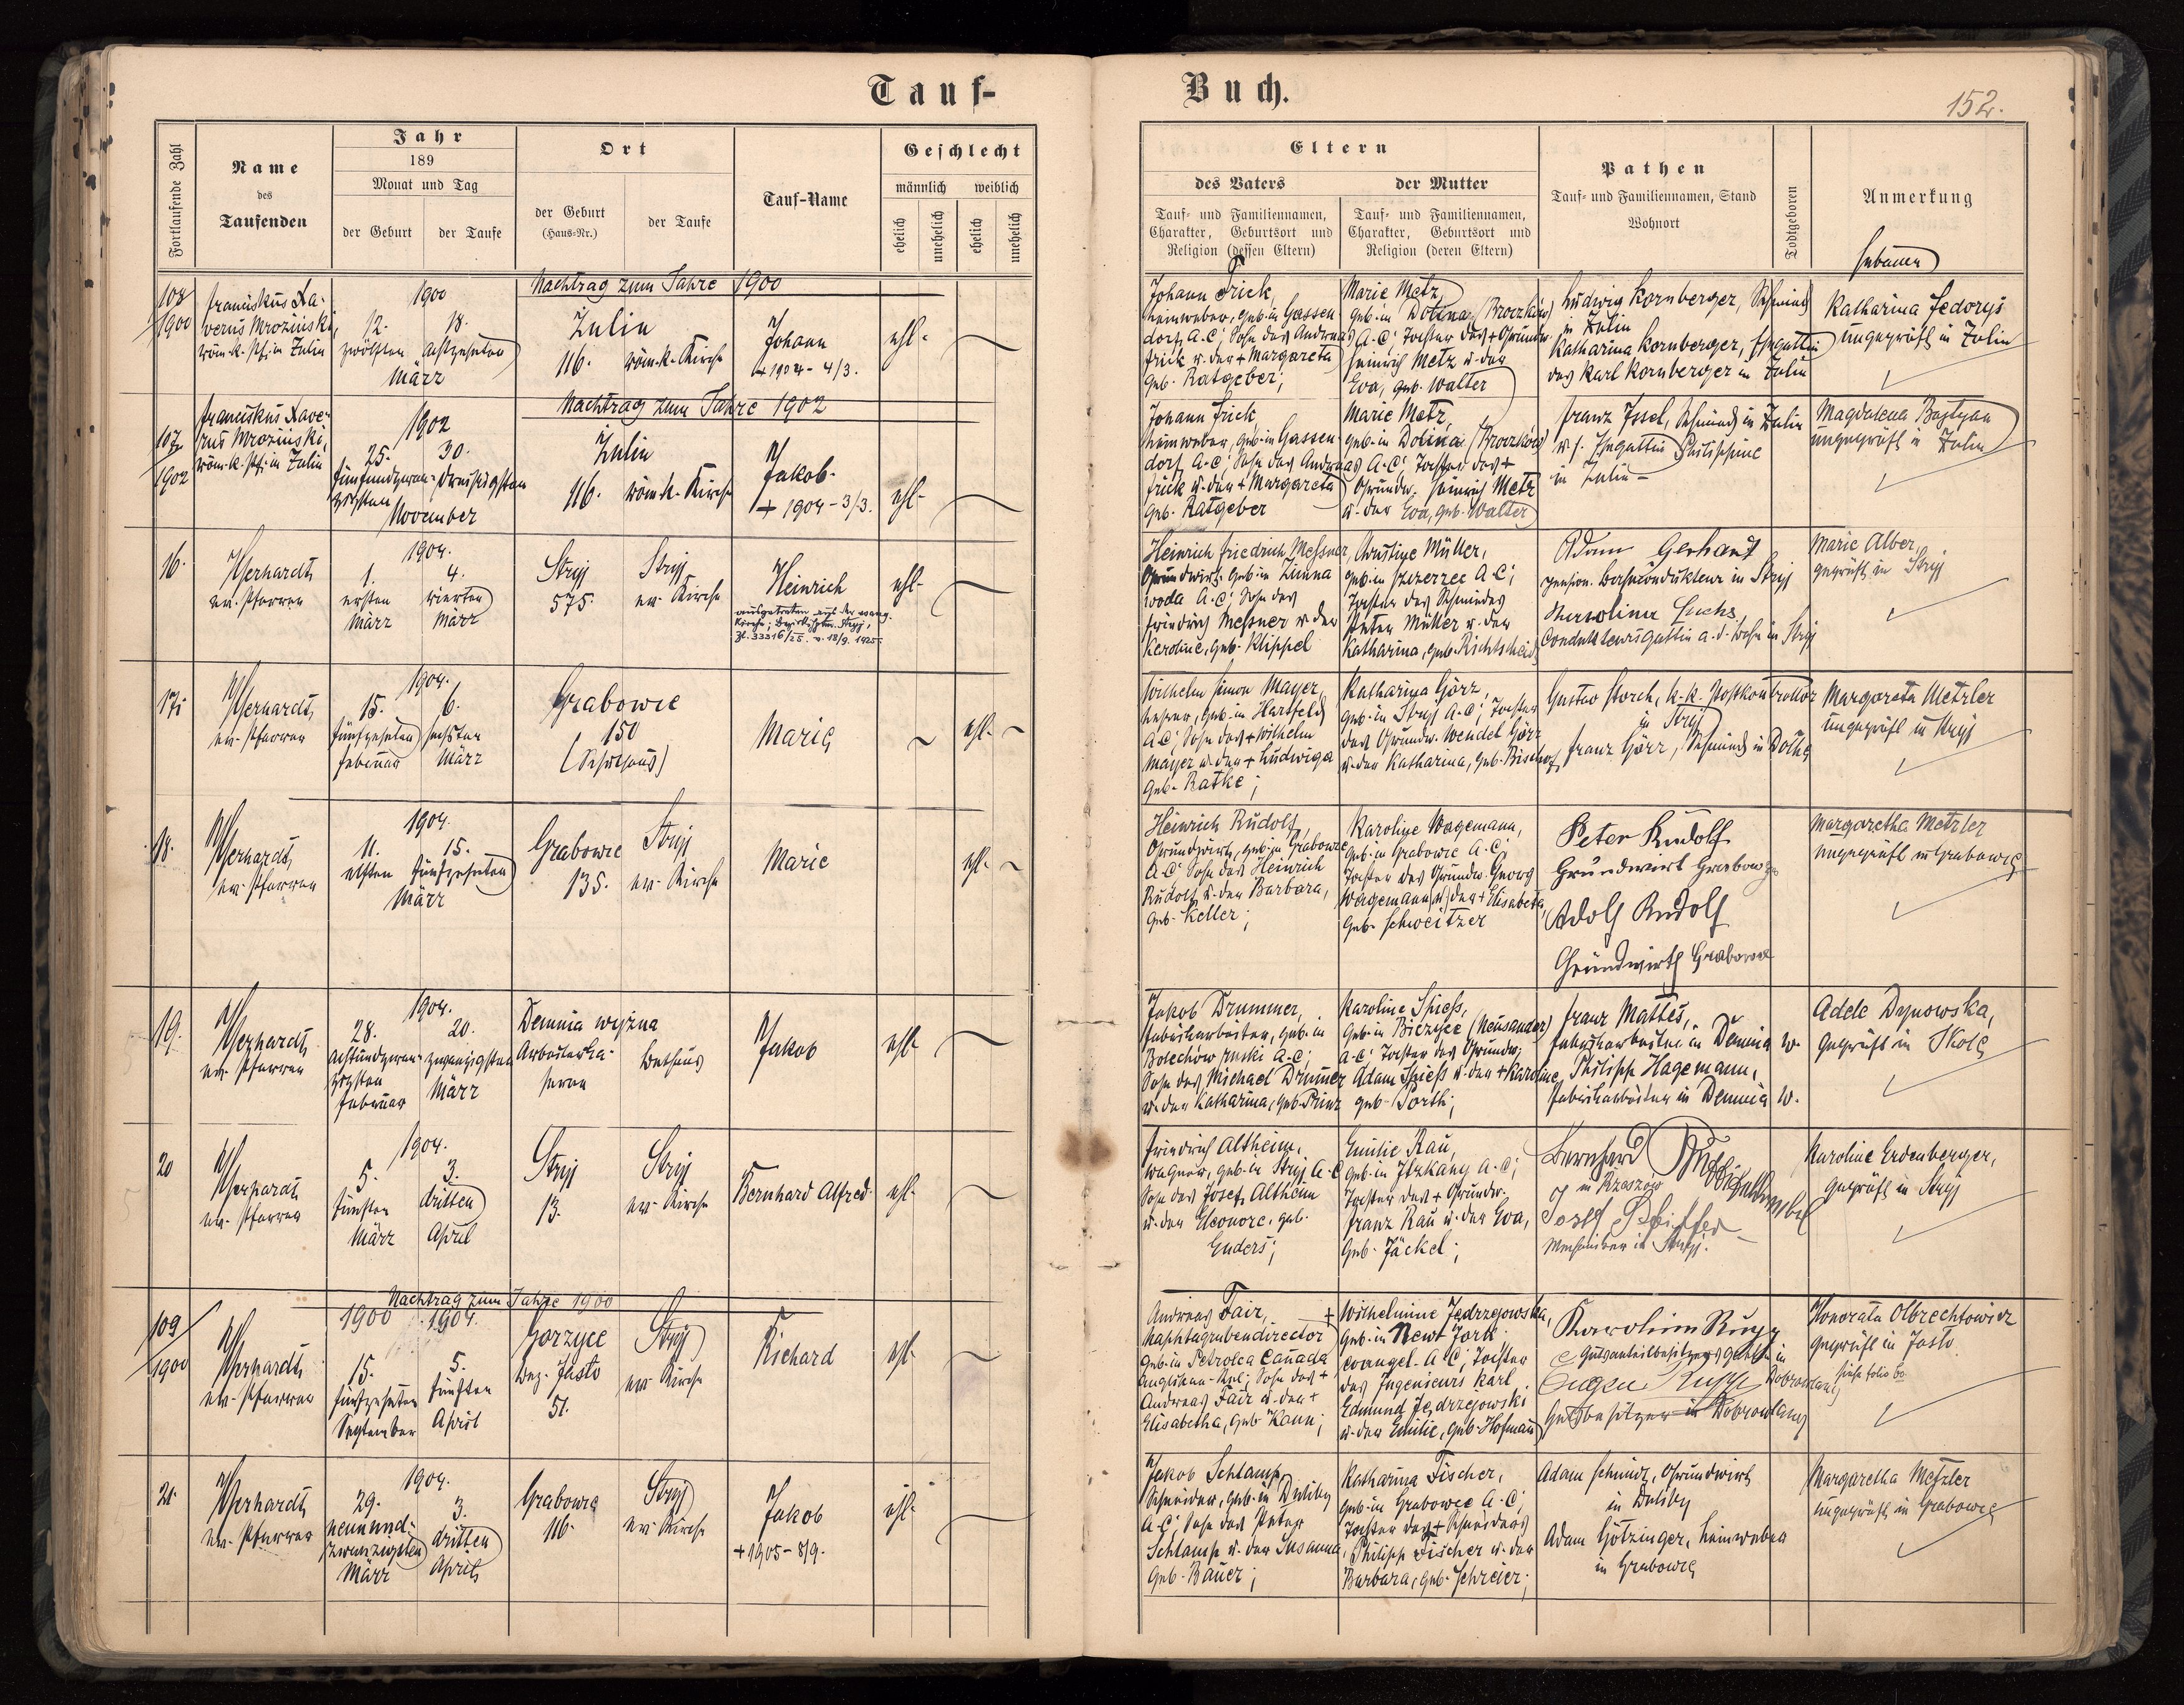 Tauf-
Buch.
152.
Fortlaufende Zahl
Name
des
Taufenden
Jahr
189
Monat und Tag
der Geburt
der Taufe
Ort
der Geburt
(Haus-Nr.)
der Taufe
Tauf-Name
Geschlecht
männlich
weiblich
ehelich
unehelich
ehelich
unehelich
Eltern
des Vaters
der Mutter
Tauf- und Familiennamen,
Charakter, Geburtsort und
Religion (dessen Eltern)
Tauf- und Familiennamen,
Charakter, Geburtsort und
Religion (deren Eltern)
Pathen
Tauf- und Familiennamen, Stand
Wohnort
Todtgeboren
Anmerkung
Hebamme
Nachtrag zum Jahre 1900
108
1900
Franciskus Xa-
verius Mroziński,
röm.-k. Pf. in Zulin
1900
12.
zwölften
18.
achtzehnten
März
Zulin
116.
röm.-k. Kirche
Johann
+ 1904 - 4/3.
ehl.
Johann Frick,
Leinweber, geb. in Gassen-
dorf, A.C; Sohn des Andreas
Frick u. der + Margareta
geb. Ratgeber;
Marie Metz,
geb. in Dolina (Broczków)
A.C; Tochter des + Grundw.
Heinrich Metz u. der
Eva, geb. Walter
Ludwig Kornberger, Schmied
in Zulin
Katharina Kornberger, Ehegattin
des Karl Kornberger in Zulin
Katharina Fedorys
ungeprüft in Zulin
Nachtrag zum Jahre 1902
107
1902
Franciskus Xave-
rius Mroziński,
röm.-k. Pf. in Zulin
1902
25.
fünfundzwan-
zigsten
30.
dreißigsten
November
Zulin
116.
röm.-k. Kirche
Jakob.
+ 1904 - 3/3.
ehl.
Johann Frick,
Leinweber, geb. in Gassen-
dorf, A.C; Sohn des Andreas
Frick u. der + Margareta
geb. Ratgeber
Marie Metz,
geb. in Dolina (Broczków)
A.C; Tochter des +
Grundw. Heinrich Metz
u. der Eva, geb. Walter
Franz Issel, Schmied in Zulin
u. s. Ehegattin Philippine
in Zulin
Magdalena Bojtyan
ungeprüft in Zulin
16.
Gerhardt,
ev. Pfarrer
1904.
1.
ersten
März
4.
vierten
März
Stryj
575.
Stryj
ev. Kirche
Heinrich
ausgetreten aus der evang.
Kirche; Bezirkshptm. Stryj,
Zl. 33316/25. v. 18/9. 1925.
ehl.
Heinrich Friedrich Messner,
Grundwirt, geb. in Zimna
woda A.C; Sohn des
Friedrich Messner u. der
Karoline, geb. Klippel
Christine Müller,
geb. in Szczerzec A.C;
Tochter des Schmiedes
Peter Müller u. der
Katharina, geb. Richtscheid
Adam Gerhardt
pension. Bahnkondukteur in Stryj
Karolina Fuchs,
Condukteursgattin a. d. Bahn in Stryj
Marie Alber,
geprüft in Stryj
17.
Gerhardt,
ev. Pfarrer
1904.
15.
fünfzehnten
Februar
6.
sechsten
März
Grabowce
150
(Schulhaus)
Marie
ehl.
Wilhelm Simon Mayer,
Lehrer, geb. in Hartfeld
A.C; Sohn des + Wilhelm
Mayer u. der + Ludwiga
geb. Ratke;
Katharina Görz,
geb. in Stryj A.C; Tochter
des Grundw. Wendel Görz
u. der Katharina, geb. Bischof
Gustav Storch, k.k. Postkontrollor
in Stryj
Franz Görz, Schmied in Dolhe
Margareta Metzler
ungeprüft in Stryj
18.
Gerhardt,
ev. Pfarrer
1904.
11.
elften
15.
fünfzehnten
März
Grabowce
135.
Stryj
ev. Kirche
Marie
ehl.
Heinrich Rudolf,
Grundwirt, geb. in Grabowce
A.C. Sohn des Heinrich
Rudolf u. der Barbara,
geb. Keller;
Karoline Wagemann,
geb. in Grabowce A.C.
Tochter des Grundw. Georg
Wagemann u. der + Elisabeta,
geb. Schweitzer
Peter Rudolf
Grundwirt Grabowce
Adolf Rudolf
Grundwirth Grabowce
Margaretha Metzler
ungeprüft in Grabowce
19.
Gerhardt,
ev. Pfarrer
1904.
28.
achtundzwan-
zigsten
Februar
20.
zwanzigsten
März
Demnia wyżna
Arbeiterka-
serne
Bethaus
Jakob
ehl.
Jakob Drummer,
Fabriksarbeiter, geb. in
Bolechów ruski A.C;
Sohn des Michael Drummer
u. der Katharina, geb. Prinz
Karoline Spiess,
geb. in Biczyce (Neusandez)
A.C; Tochter des Grundw.
Adam Spiess u. der + Karoline,
geb. Porth;
Franz Mattes,
Fabriksarbeiter in Demnia w.
Philipp Hagemann,
Fabriksarbeiter in Demnia w.
Adele Dynowska,
geprüft in Skole
20
Gerhardt,
ev. Pfarrer
1904.
5.
fünften
März
3.
dritten
April
Stryj
13.
Stryj
ev. Kirche
Bernhard Alfred.
ehl.
Friedrich Altheim,
Wagner, geb. in Stryj A.C
Sohn des Josef Altheim
u. der Eleonore, geb.
Enders;
Emilie Rau,
geb. in Itzkany A.C;
Tochter des + Grundw.
Franz Rau u. der Eva,
geb. Jäckel;
Bernhard
in Rzeszów
Josef Pfeiffer
Mechaniker in Stryj.
Karoline Erdenberger,
geprüft in Stryj
Nachtrag zum Jahre 1900
109
1900
Gerhardt,
ev. Pfarrer
1900
1904.
15.
fünfzehnten
September
5.
fünften
April
Gorzyce
Bez. Jasło
51.
Stryj
ev. Kirche
Richard
ehl.
Andreas Fair,
Naphtagrubendirector
geb. in Petrolea Canada
Anglikan.-Rel; Sohn des +
Andreas Fair u. der +
Elisabetha, geb. Kann;
+ Wilhelmine Jędrzejowska,
geb. in Newt Jork
evangel. A.C; Tochter
des Ingenieurs Karl
Edmund Jędrzejowski
u. der Emilie, geb. Hofmann
Karolina Rupp
Gutsanteilbesitzers Gattin in
Dobrowlany
Eugen Rupp
Gutsbesitzer in Dobrowlany
Honorata Olbrechtowicz
geprüft in Jasło
siehe folio 60
21.
Gerhardt,
ev. Pfarrer
1904.
29.
neunund-
zwanzigsten
März
3.
dritten
April
Grabowce
116.
Stryj
ev. Kirche
Jakob
+ 1905 - 8/9.
ehl.
Jakob Schlamp,
Schneider, geb. in Duliby
A.C; Sohn des Peter
Schlamp u. der Susanna,
geb. Bauer;
Katharina Fischer,
geb. in Grabowce A.C;
Tochter des + Schneiders
Philipp Fischer u. der
Barbara, geb. Schreier;
Adam Schmidt, Grundwirt
in Duliby
Adam Götzinger, Leinweber
in Grabowce
Margaretha Metzler
ungeprüft in Grabowce